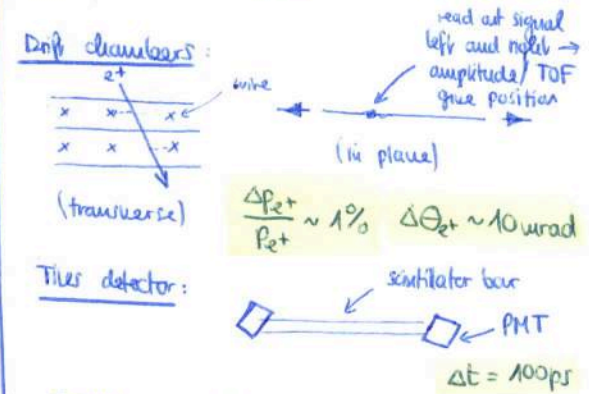 Drift chambers:
e+
wire
x x x
x x x
(transverse)
read out signal
left and right →
amplitude / TOF
give position
(in plane)
Δp_e+ / p_e+ ~ 1% Δθ_e+ ~ 10 mrad
detector:
scintillator bar
PMT
Δt = 100ps